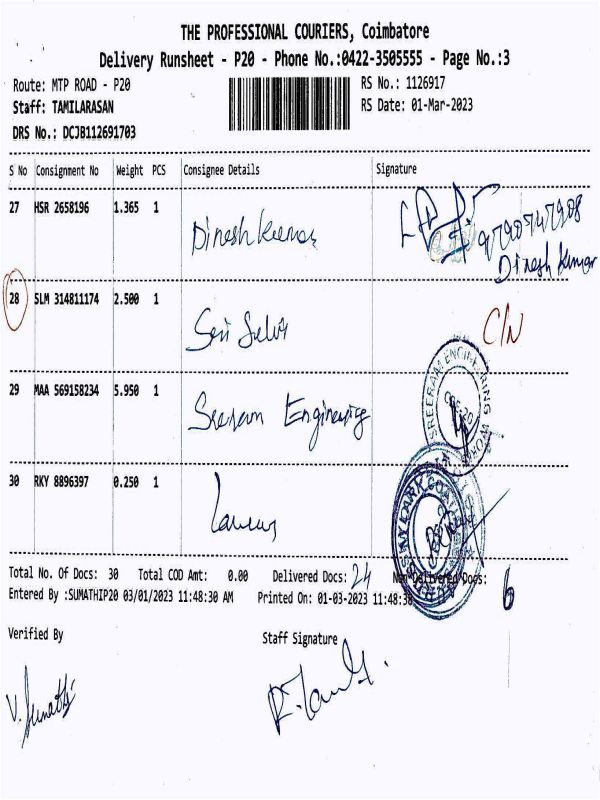 THE PROFESSIONAL COURIERS, Coimbatore
Delivery Runsheet - P20 - Phone No.:0422-3505555 - Page No.:3
Route: MTP ROAD - P20
RS No.: 1126917
Staff: TAMILARASAN
RS Date: 01-Mar-2023
DRS No.: DCJB112691703
S No Consignment No Weight PCS Consignee Details Signature
27 HSR 2658196 1.365 1 Dinesh Kumar
9790547908
Dinesh Kumar
28 SLM 314811174 2.500 1 Sri Selvi C/N
29 MAA 569158234 5.950 1 Sreeram Engineering
SREERAM ENGINEERING WORKS
30 RKY 8896397 0.250 1
Total No. Of Docs: 30 Total COD Amt: 0.00 Delivered Docs: 24 Non Delivered Docs: 6
Entered By :SUMATHIP20 03/01/2023 11:48:30 AM Printed On: 01-03-2023 11:48:3
Verified By Staff Signature
V. Sumathi